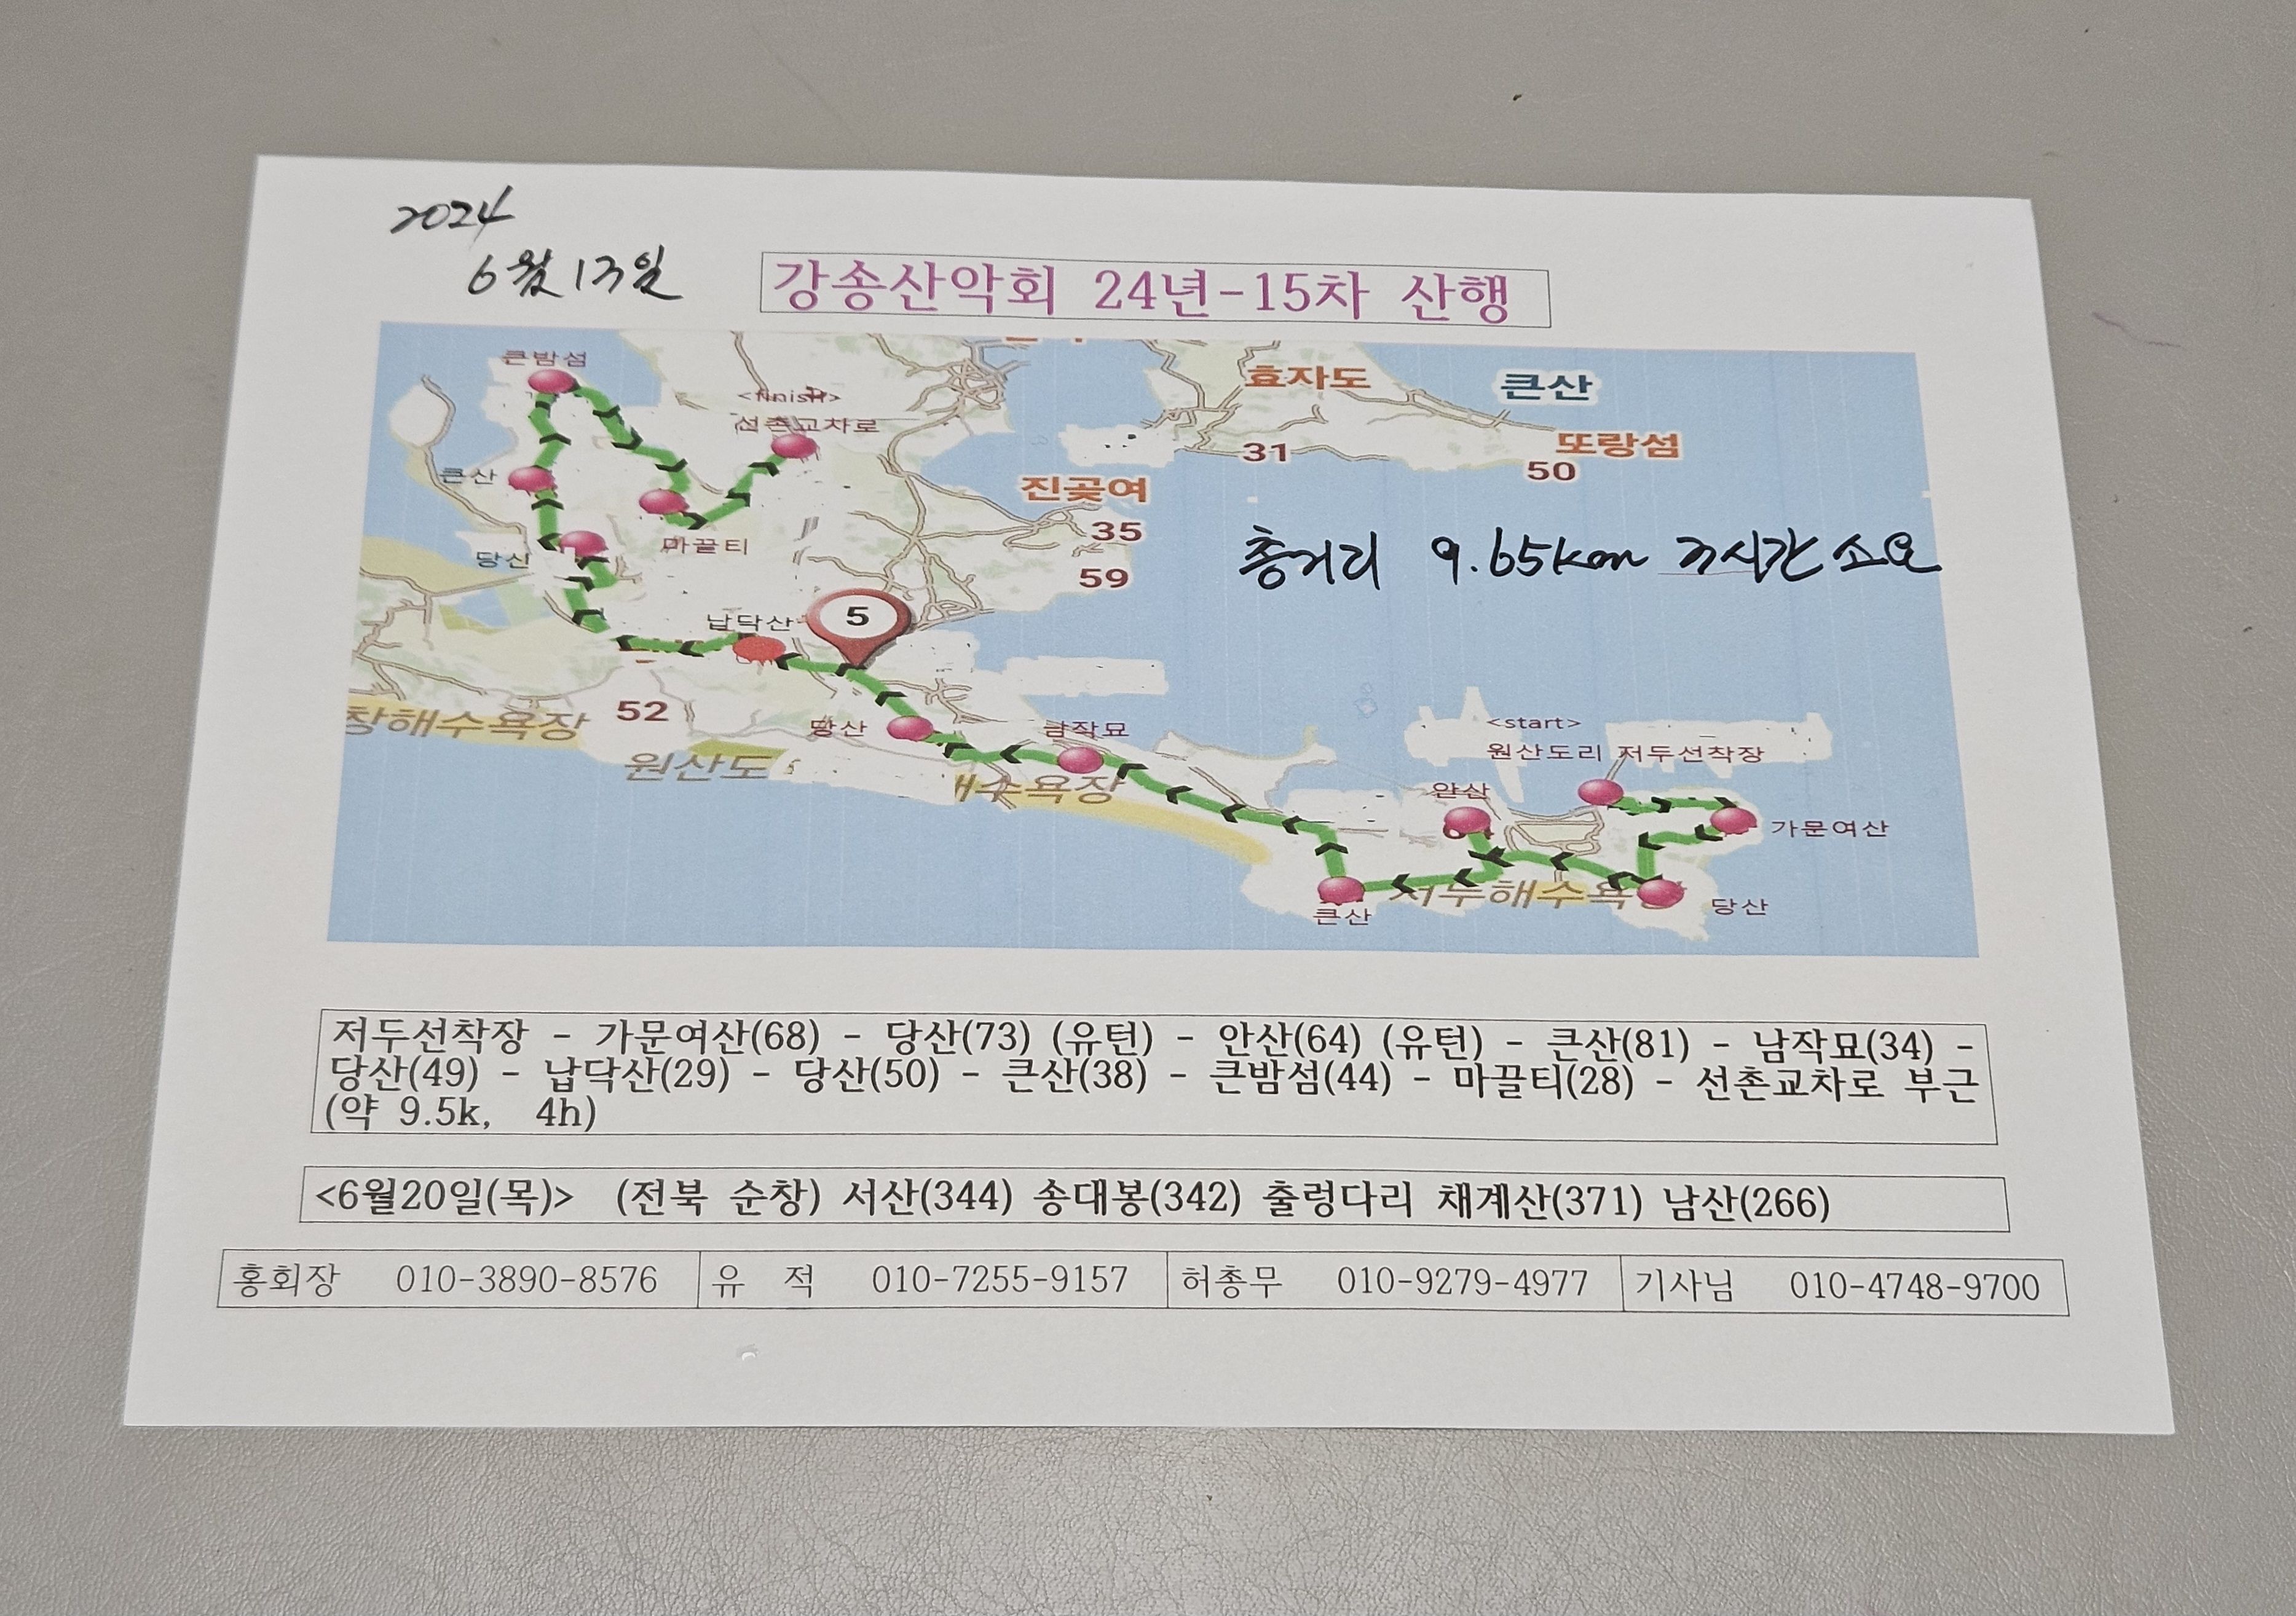 2024
6월 13일
강송산악회 24년-15차 산행
큰밤섬
<finish>
선촌교차로
효자도
큰산
또랑섬
31
50
큰산
진곶여
35
마끌티
당산
59
총거리 9.65km 3시간 소요
납닥산
5
52
창해수욕장
당산
남작묘
<start>
원산도리 저두선착장
원산도
해수욕장
안산
가문여산
저두해수욕
당산
큰산
저두선착장 - 가문여산(68) - 당산(73) (유턴) - 안산(64) (유턴) - 큰산(81) - 남작묘(34) -
당산(49) - 납닥산(29) - 당산(50) - 큰산(38) - 큰밤섬(44) - 마끌티(28) - 선촌교차로 부근
(약 9.5k, 4h)
<6월20일(목)> (전북 순창) 서산(344) 송대봉(342) 출렁다리 채계산(371) 남산(266)
홍회장 010-3890-8576 유 적 010-7255-9157 허총무 010-9279-4977 기사님 010-4748-9700